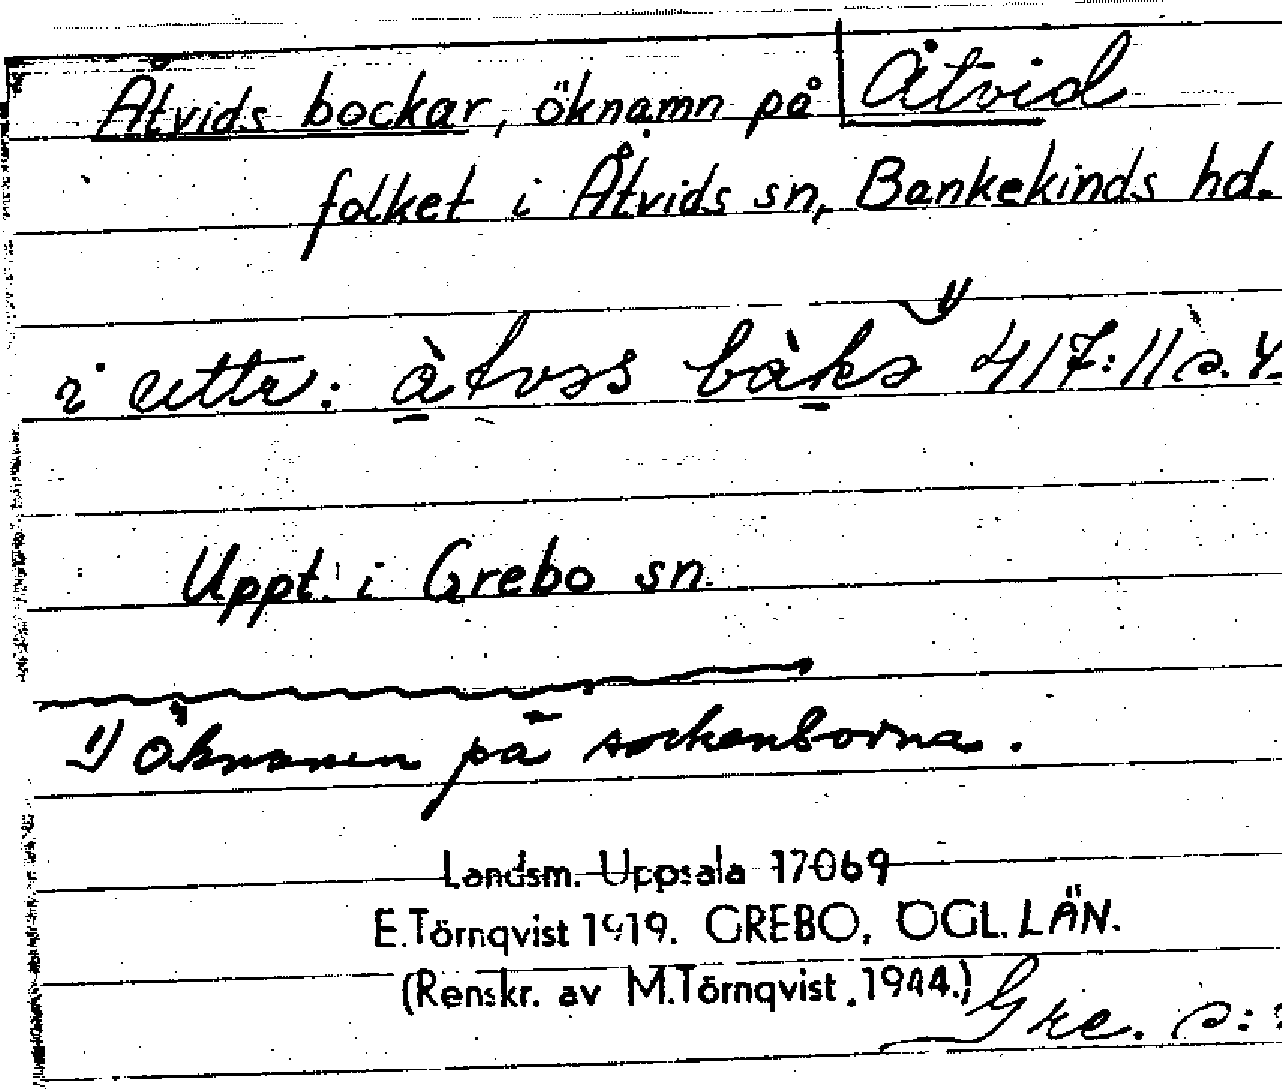 Åtvid
Åtvids bockar, öknamn på
folket i Åtvids sn, Bankekinds hd.
i uttr: åtvəs båkə 1) 4/7:11 s. 4
Uppt. i Grebo sn.
1) öknamn på sockenborna.
Landsm. Uppsala 17069
E. Törnqvist 1919. GREBO, ÖGL. LÄN.
(Renskr. av M. Törnqvist. 1944.)
Gre. s: